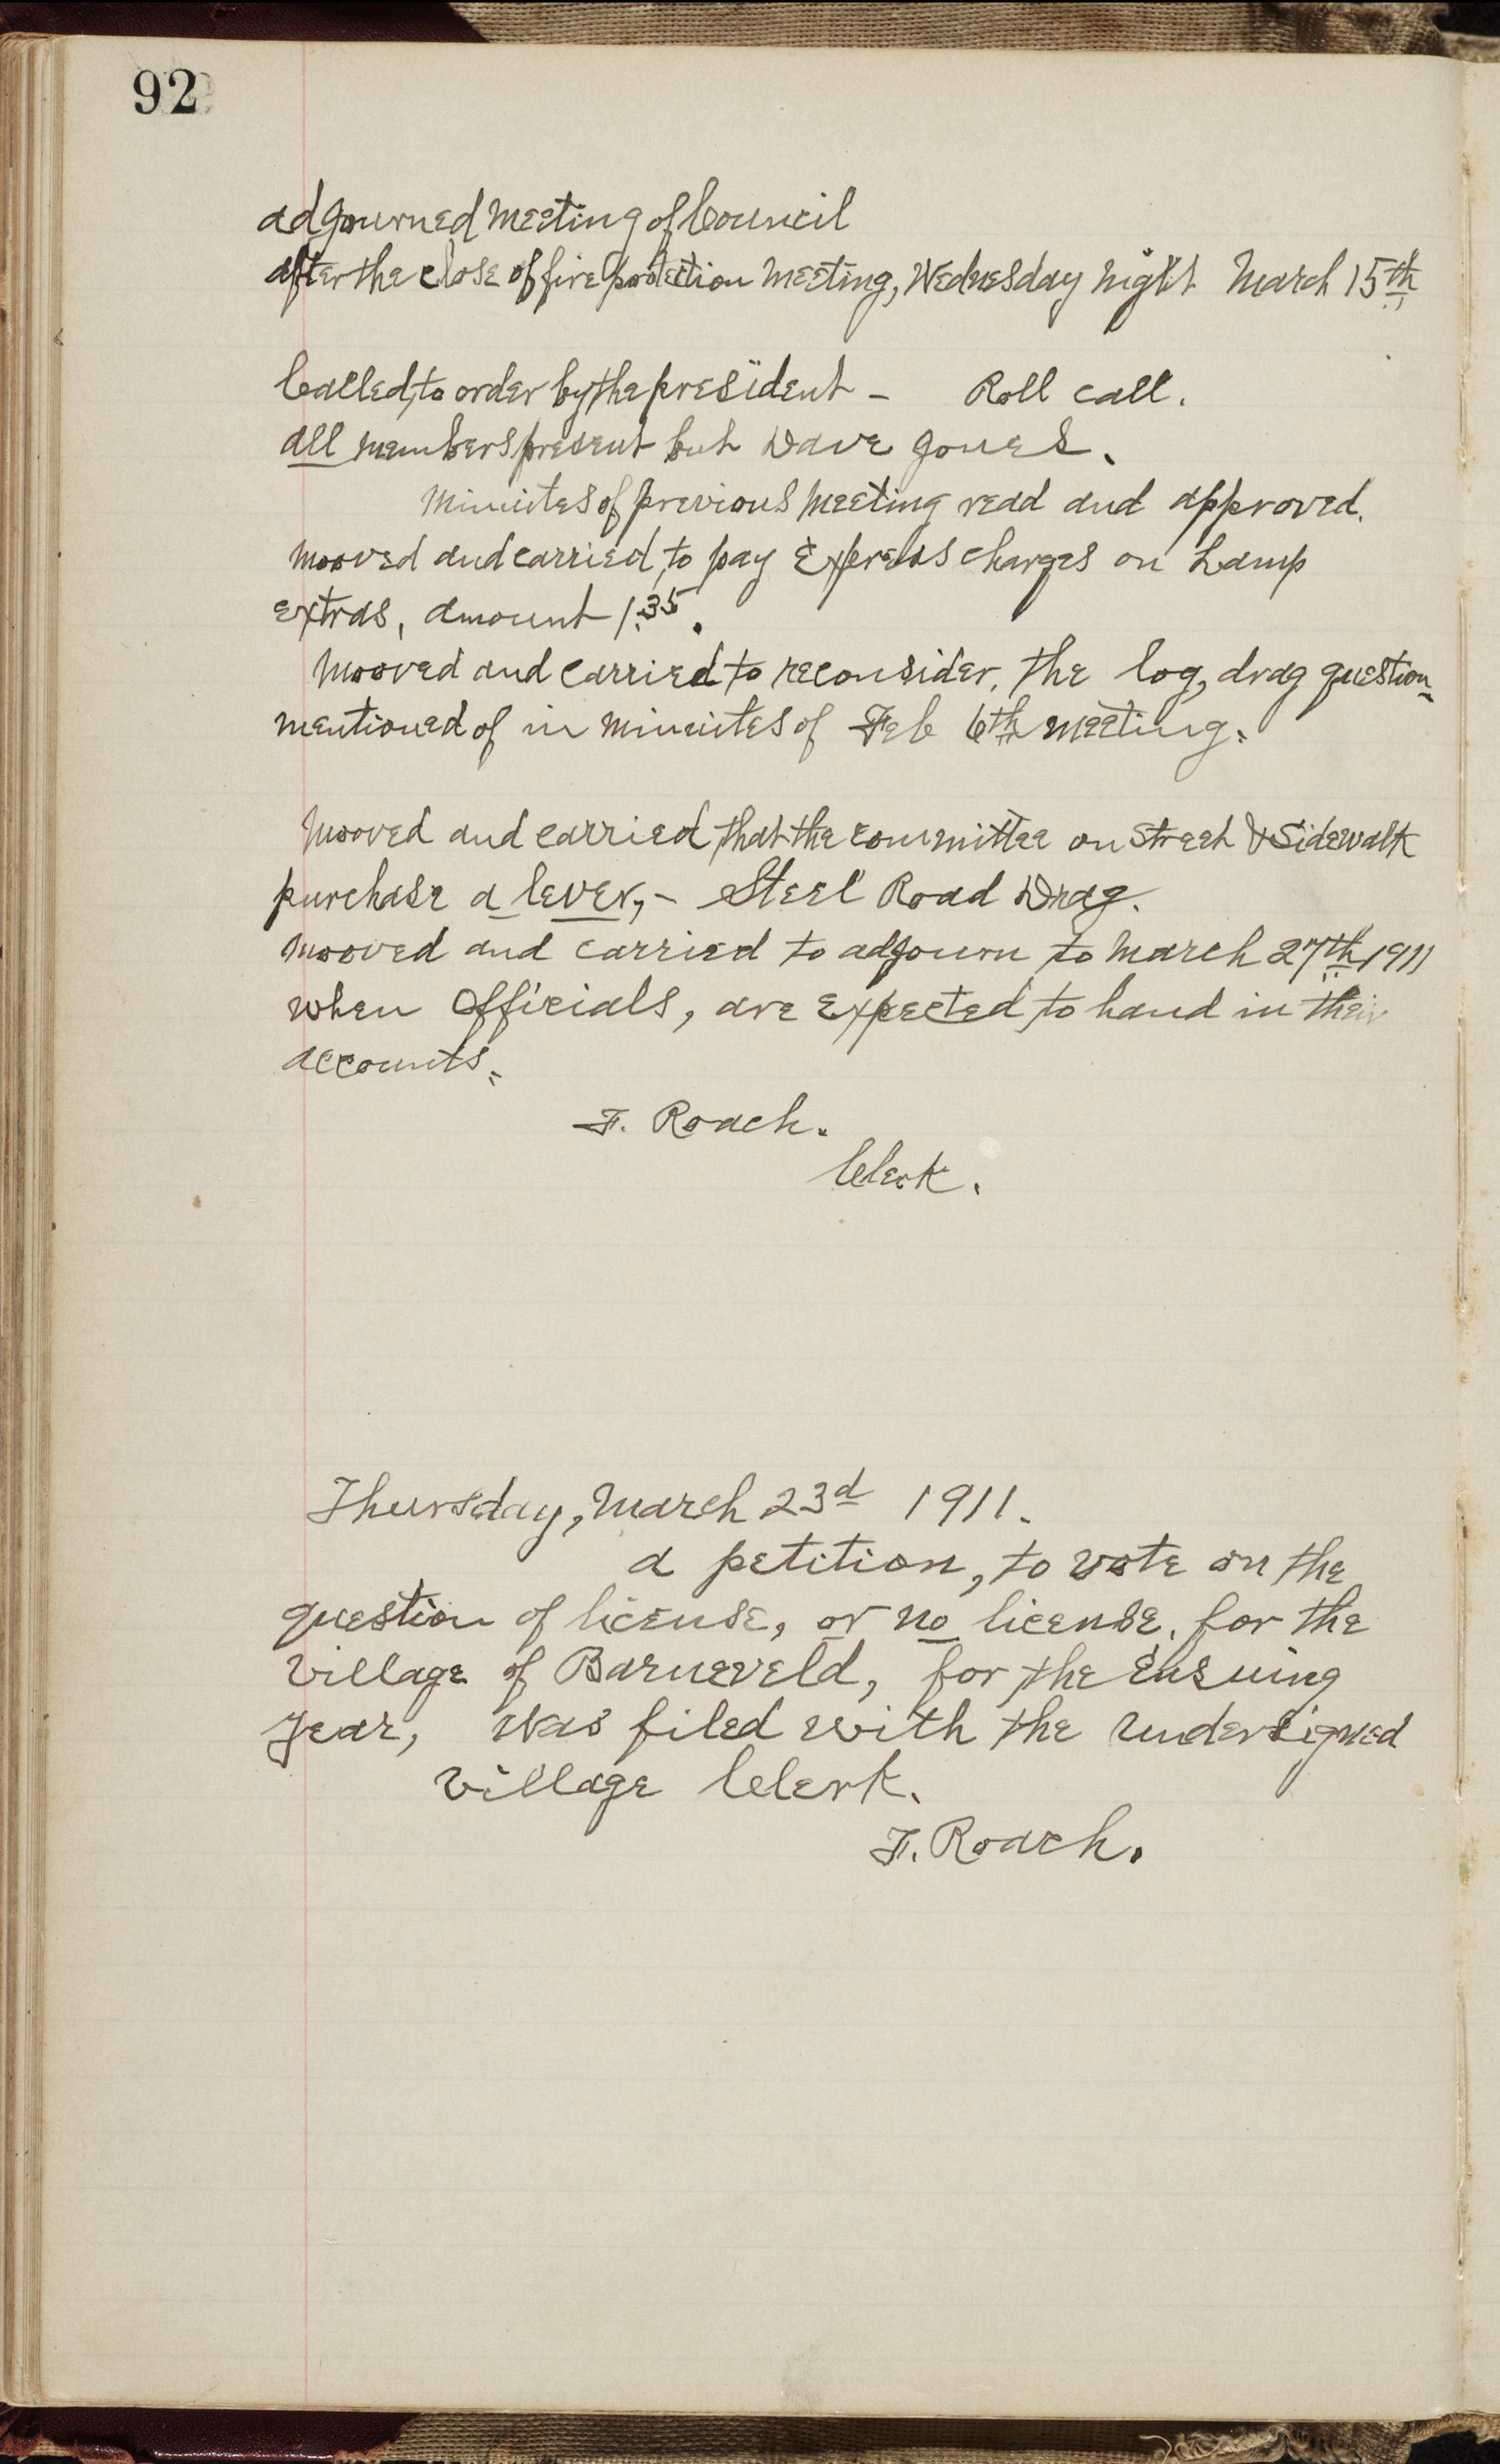 92
adjourned meeting of Council
after the close of fire protection meeting, Wednesday night March 15th
Called, to order by the president - Roll call.
all members present but Dave Jones.
minuites of previous meeting read and approved.
mooved and carried, to pay Express charges on Lamp
extras, amount 1.35.
mooved and carried to reconsider, the log, drag question
mentioned of in minuites of Feb 6th meeting.
mooved and carried that the committee on Street & Sidewalk
purchase a lever, - Steel Road Drag.
mooved and carried to adjourn to March 27th, 1911
when Officials, are expected to hand in their
accounts.
F. Roach.
Clerk.
Thursday, March 23d 1911.
a petition, to vote on the
question of license, or no license, for the
village of Barneveld, for the ensuing
year, was filed with the undersigned
village Clerk.
F. Roach.